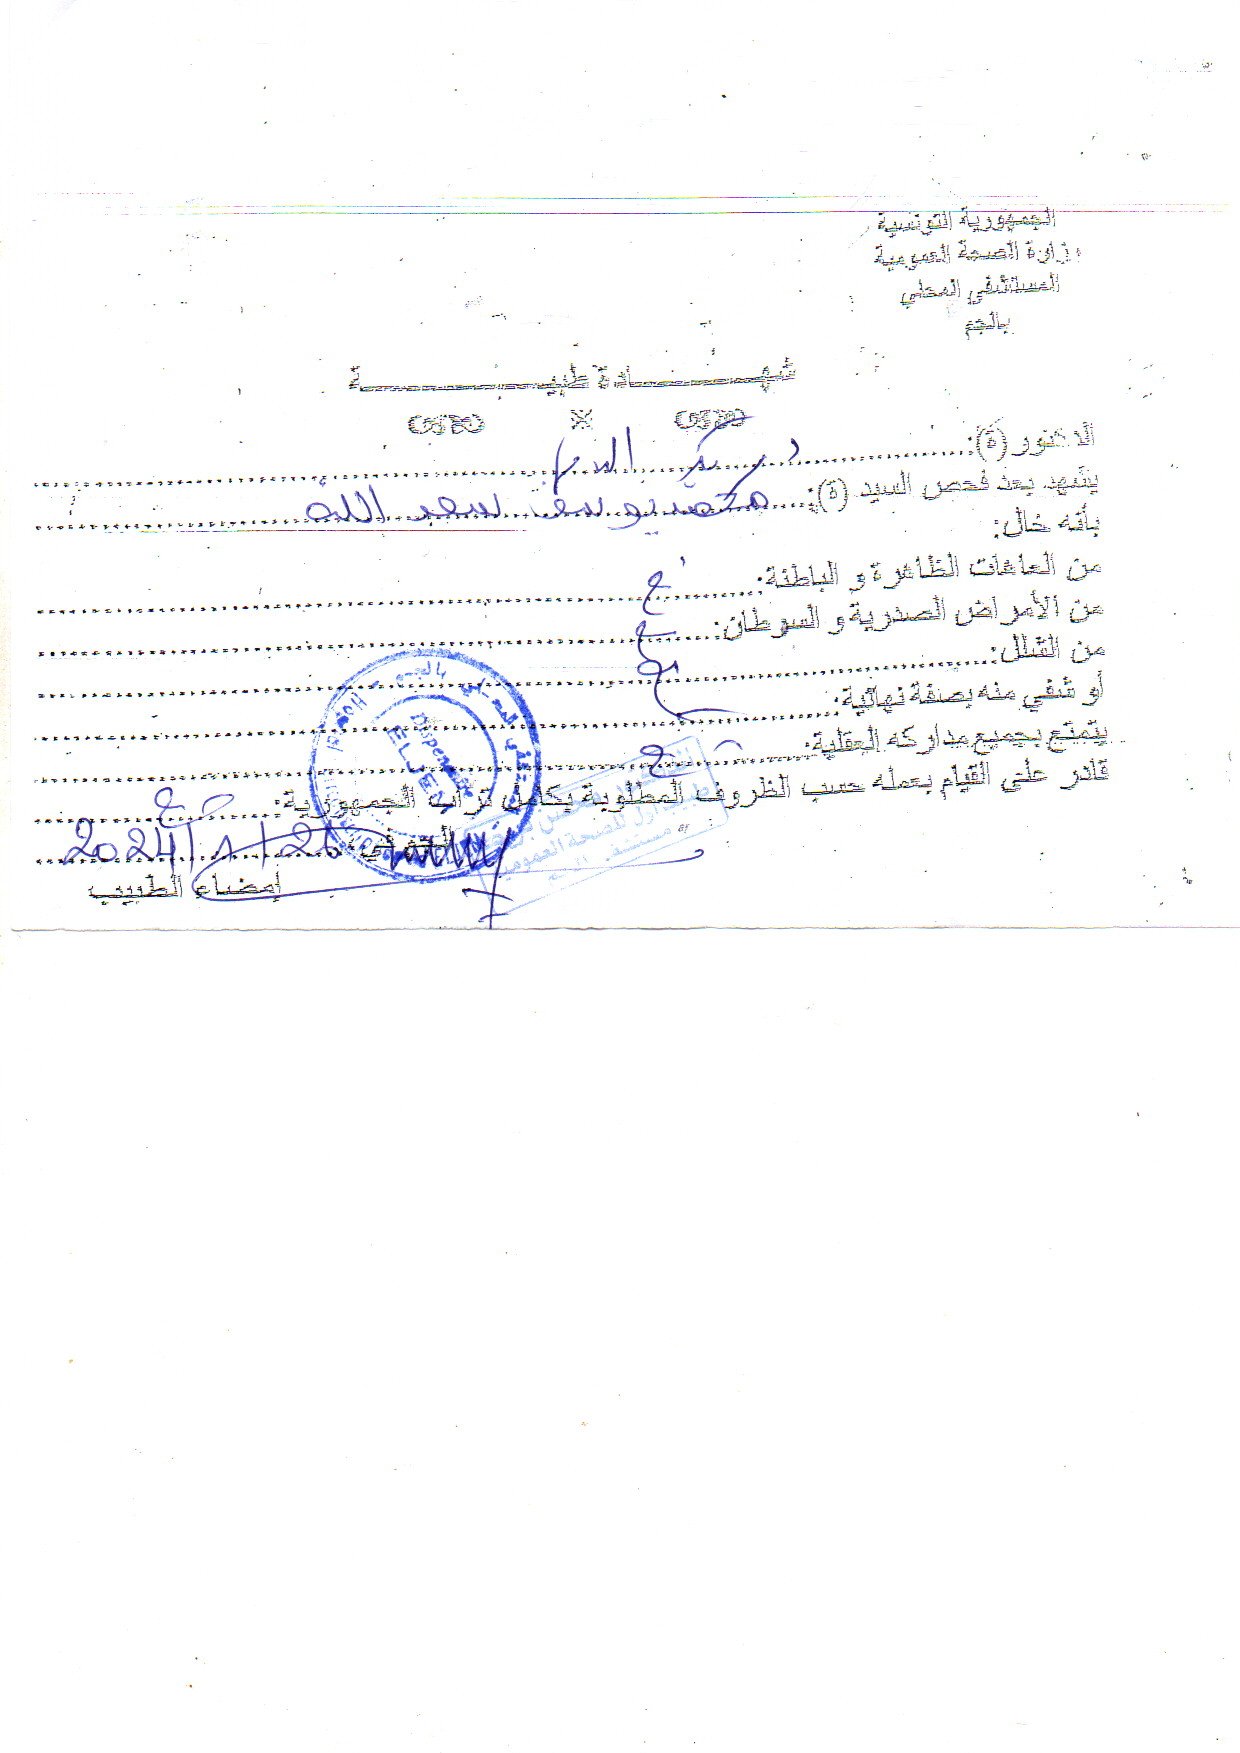 الجمهورية التونسية
وزارة الصحة العمومية
المستشفى المحلي
بالجم
شهـــــادة طبيـــــــــــة
الدكتور (ة):
يشهد بعد فحص السيد (ة): محمد يوسف سعد الله
بأنه خال:
من العاهات الظاهرة و الباطنة:
من الأمراض الصدرية و السرطان:
من الشلل:
أو شفي منه بصفة نهائية:
يتمتع بجميع مداركه العقلية:
قادر على القيام بعمله حسب الظروف المطلوبة بكامل تراب الجمهورية:
الجم في 26/1/2024
إمضاء الطبيب
Dispensaire
EL JEM
طبيب أول للصحة العمومية